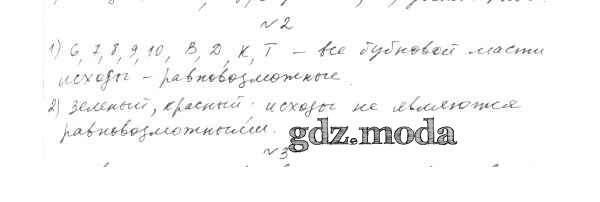 №2
1) 6, 7, 8, 9, 10, В, Д, К, Т – все бубновой масти
исходы – равновозможные.
2) зеленый, красный. исходы не являются
равновозможными.
gdz.moda
№3